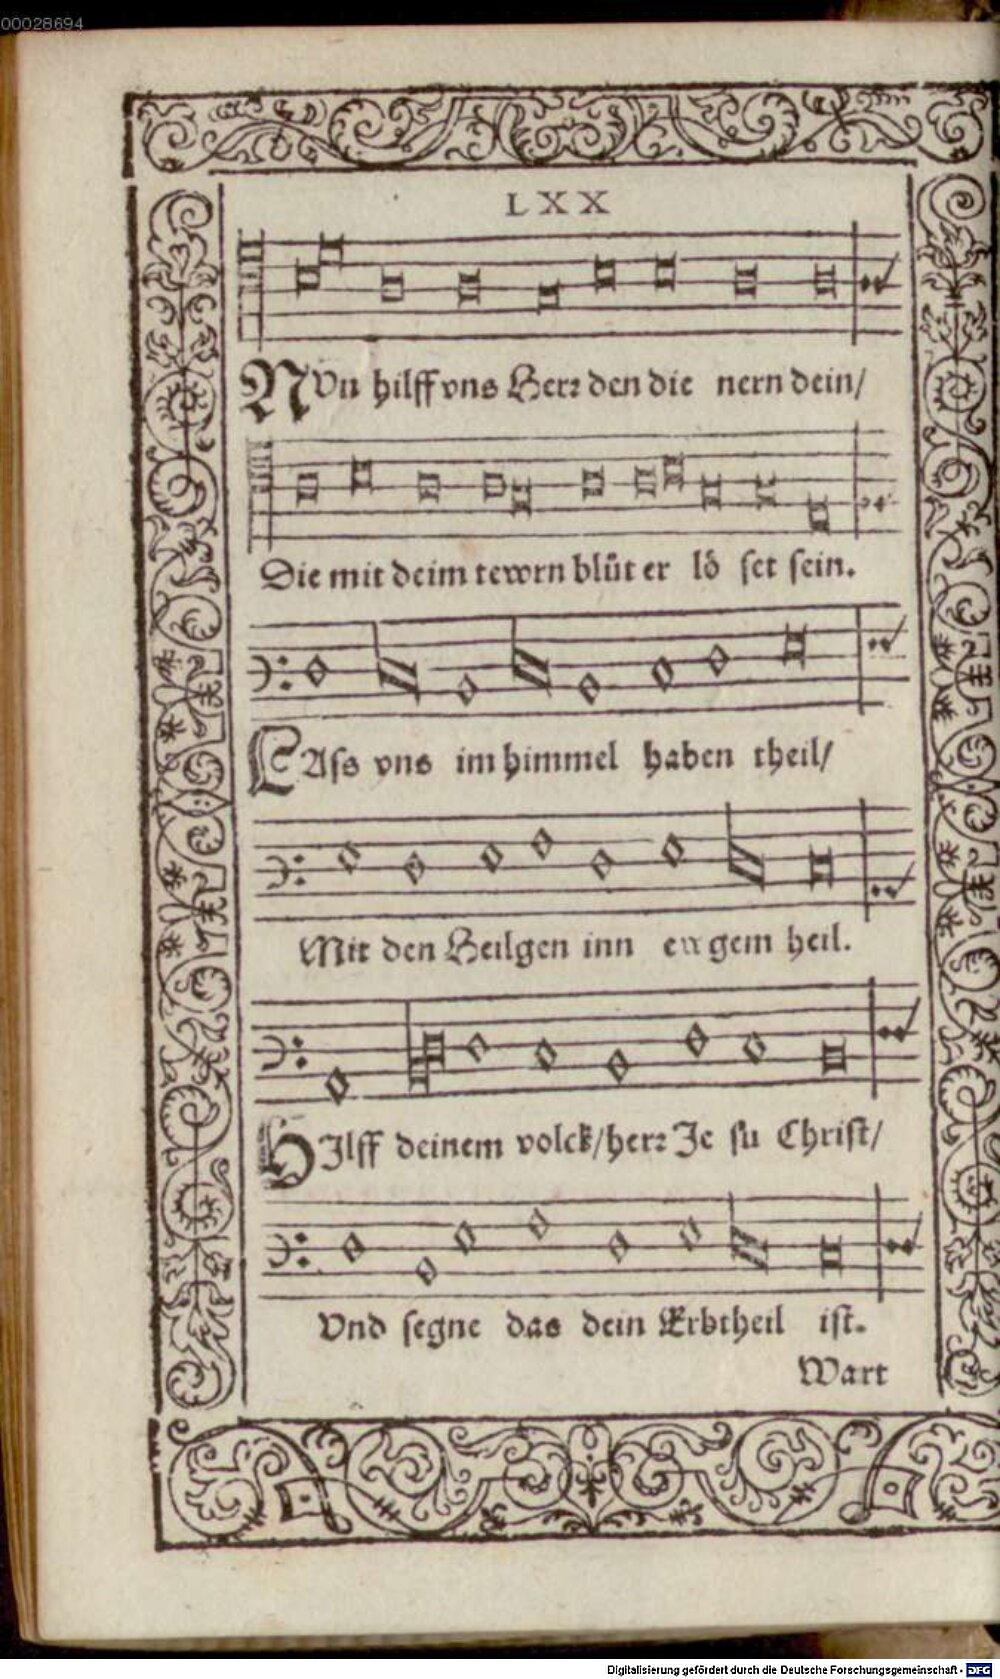 00028694
LXX
NVn hilff vns Herr den die nern dein/
Die mit deim tewrn blůt er lö set sein.
LAss vns im himmel haben theil/
Mit den Heilgen inn ewgem heil.
HIlff deinem volck/herr Je su Christ/
Vnd segne das dein Erbtheil ist.
Wart
Digitalisierung gefördert durch die Deutsche Forschungsgemeinschaft - DFG